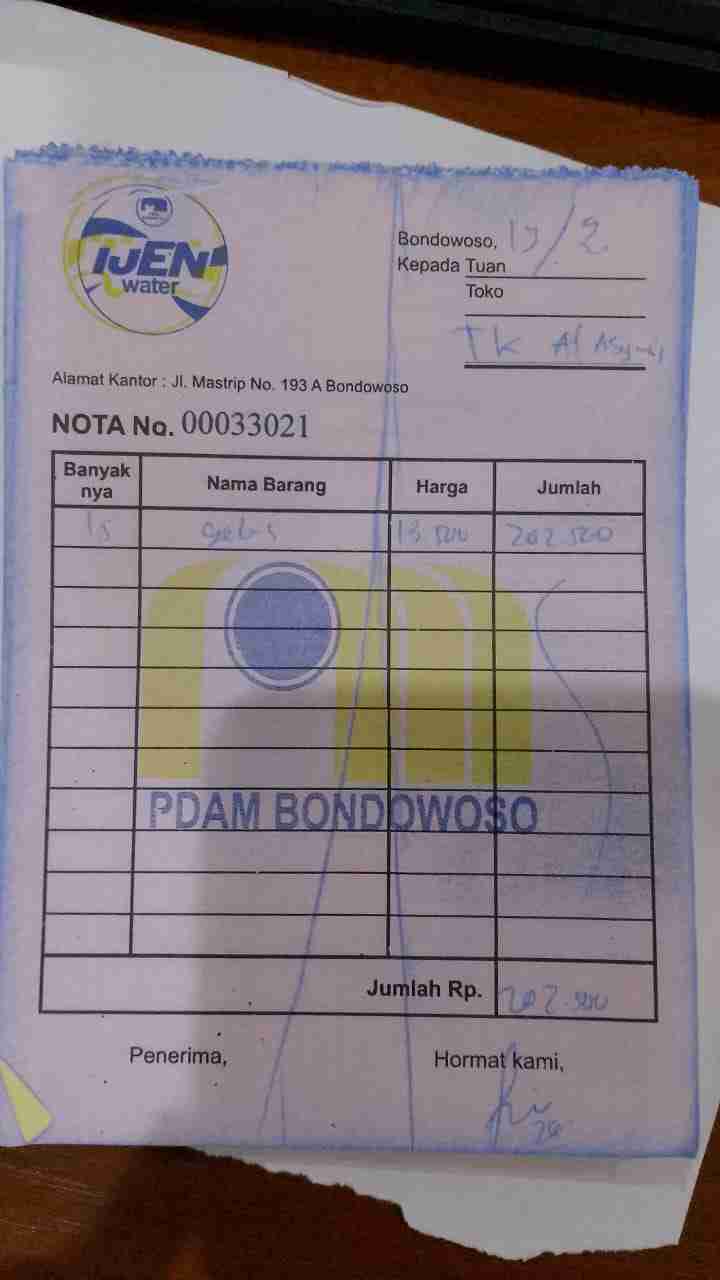 IJEN
water
Bondowoso, 15/2
Kepada Tuan
Toko
Tk Al
Alamat Kantor : Jl. Mastrip No. 193 A Bondowoso
NOTA No. 00033021
Banyak nya Nama Barang Harga Jumlah
15 gelas 13.500 202.500
PDAM BONDOWOSO
Jumlah Rp. 202.500
Penerima, Hormat kami,